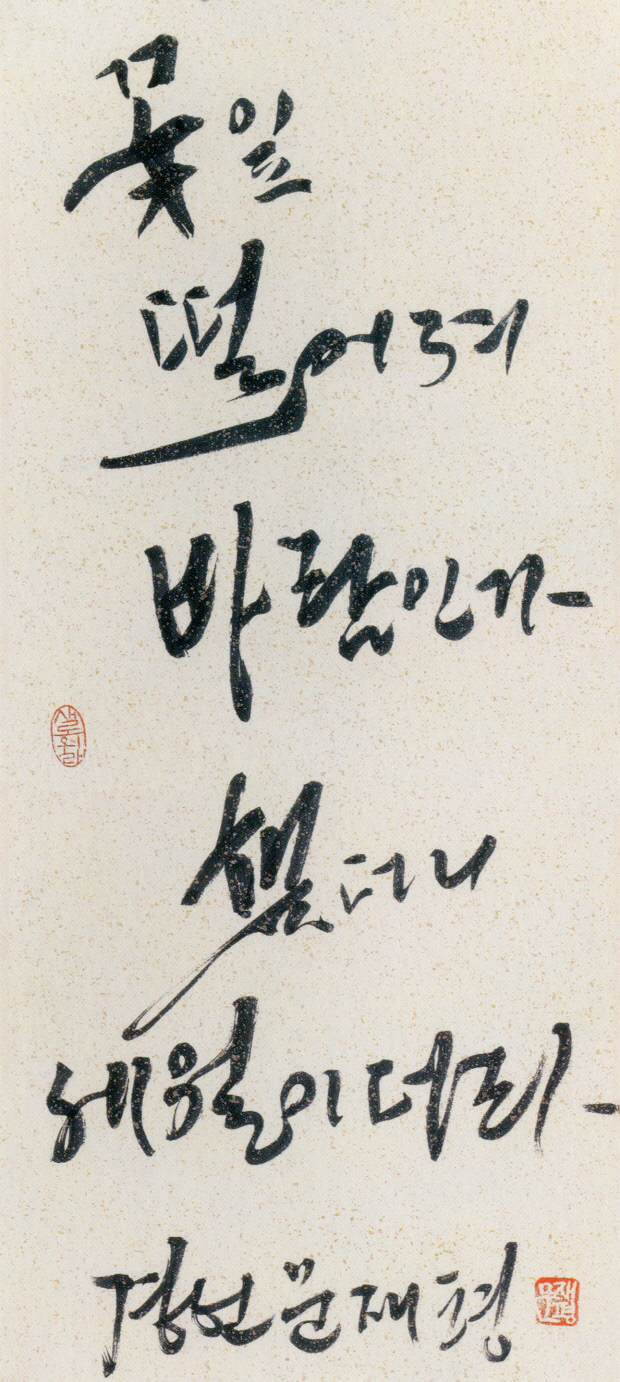 꽃잎
떨어져
바람인가
했더니
세월이더라
문재평